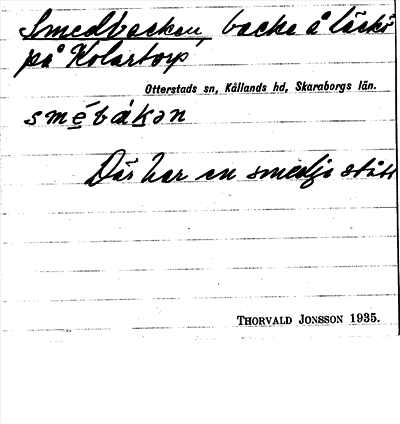 Smedbacken, backe å Läckö
på Kolartorp
Otterstads sn, Kållands hd, Skaraborgs län.
smé̱bàḵən
Där har en smedja stått
THORVALD JONSSON 1935.